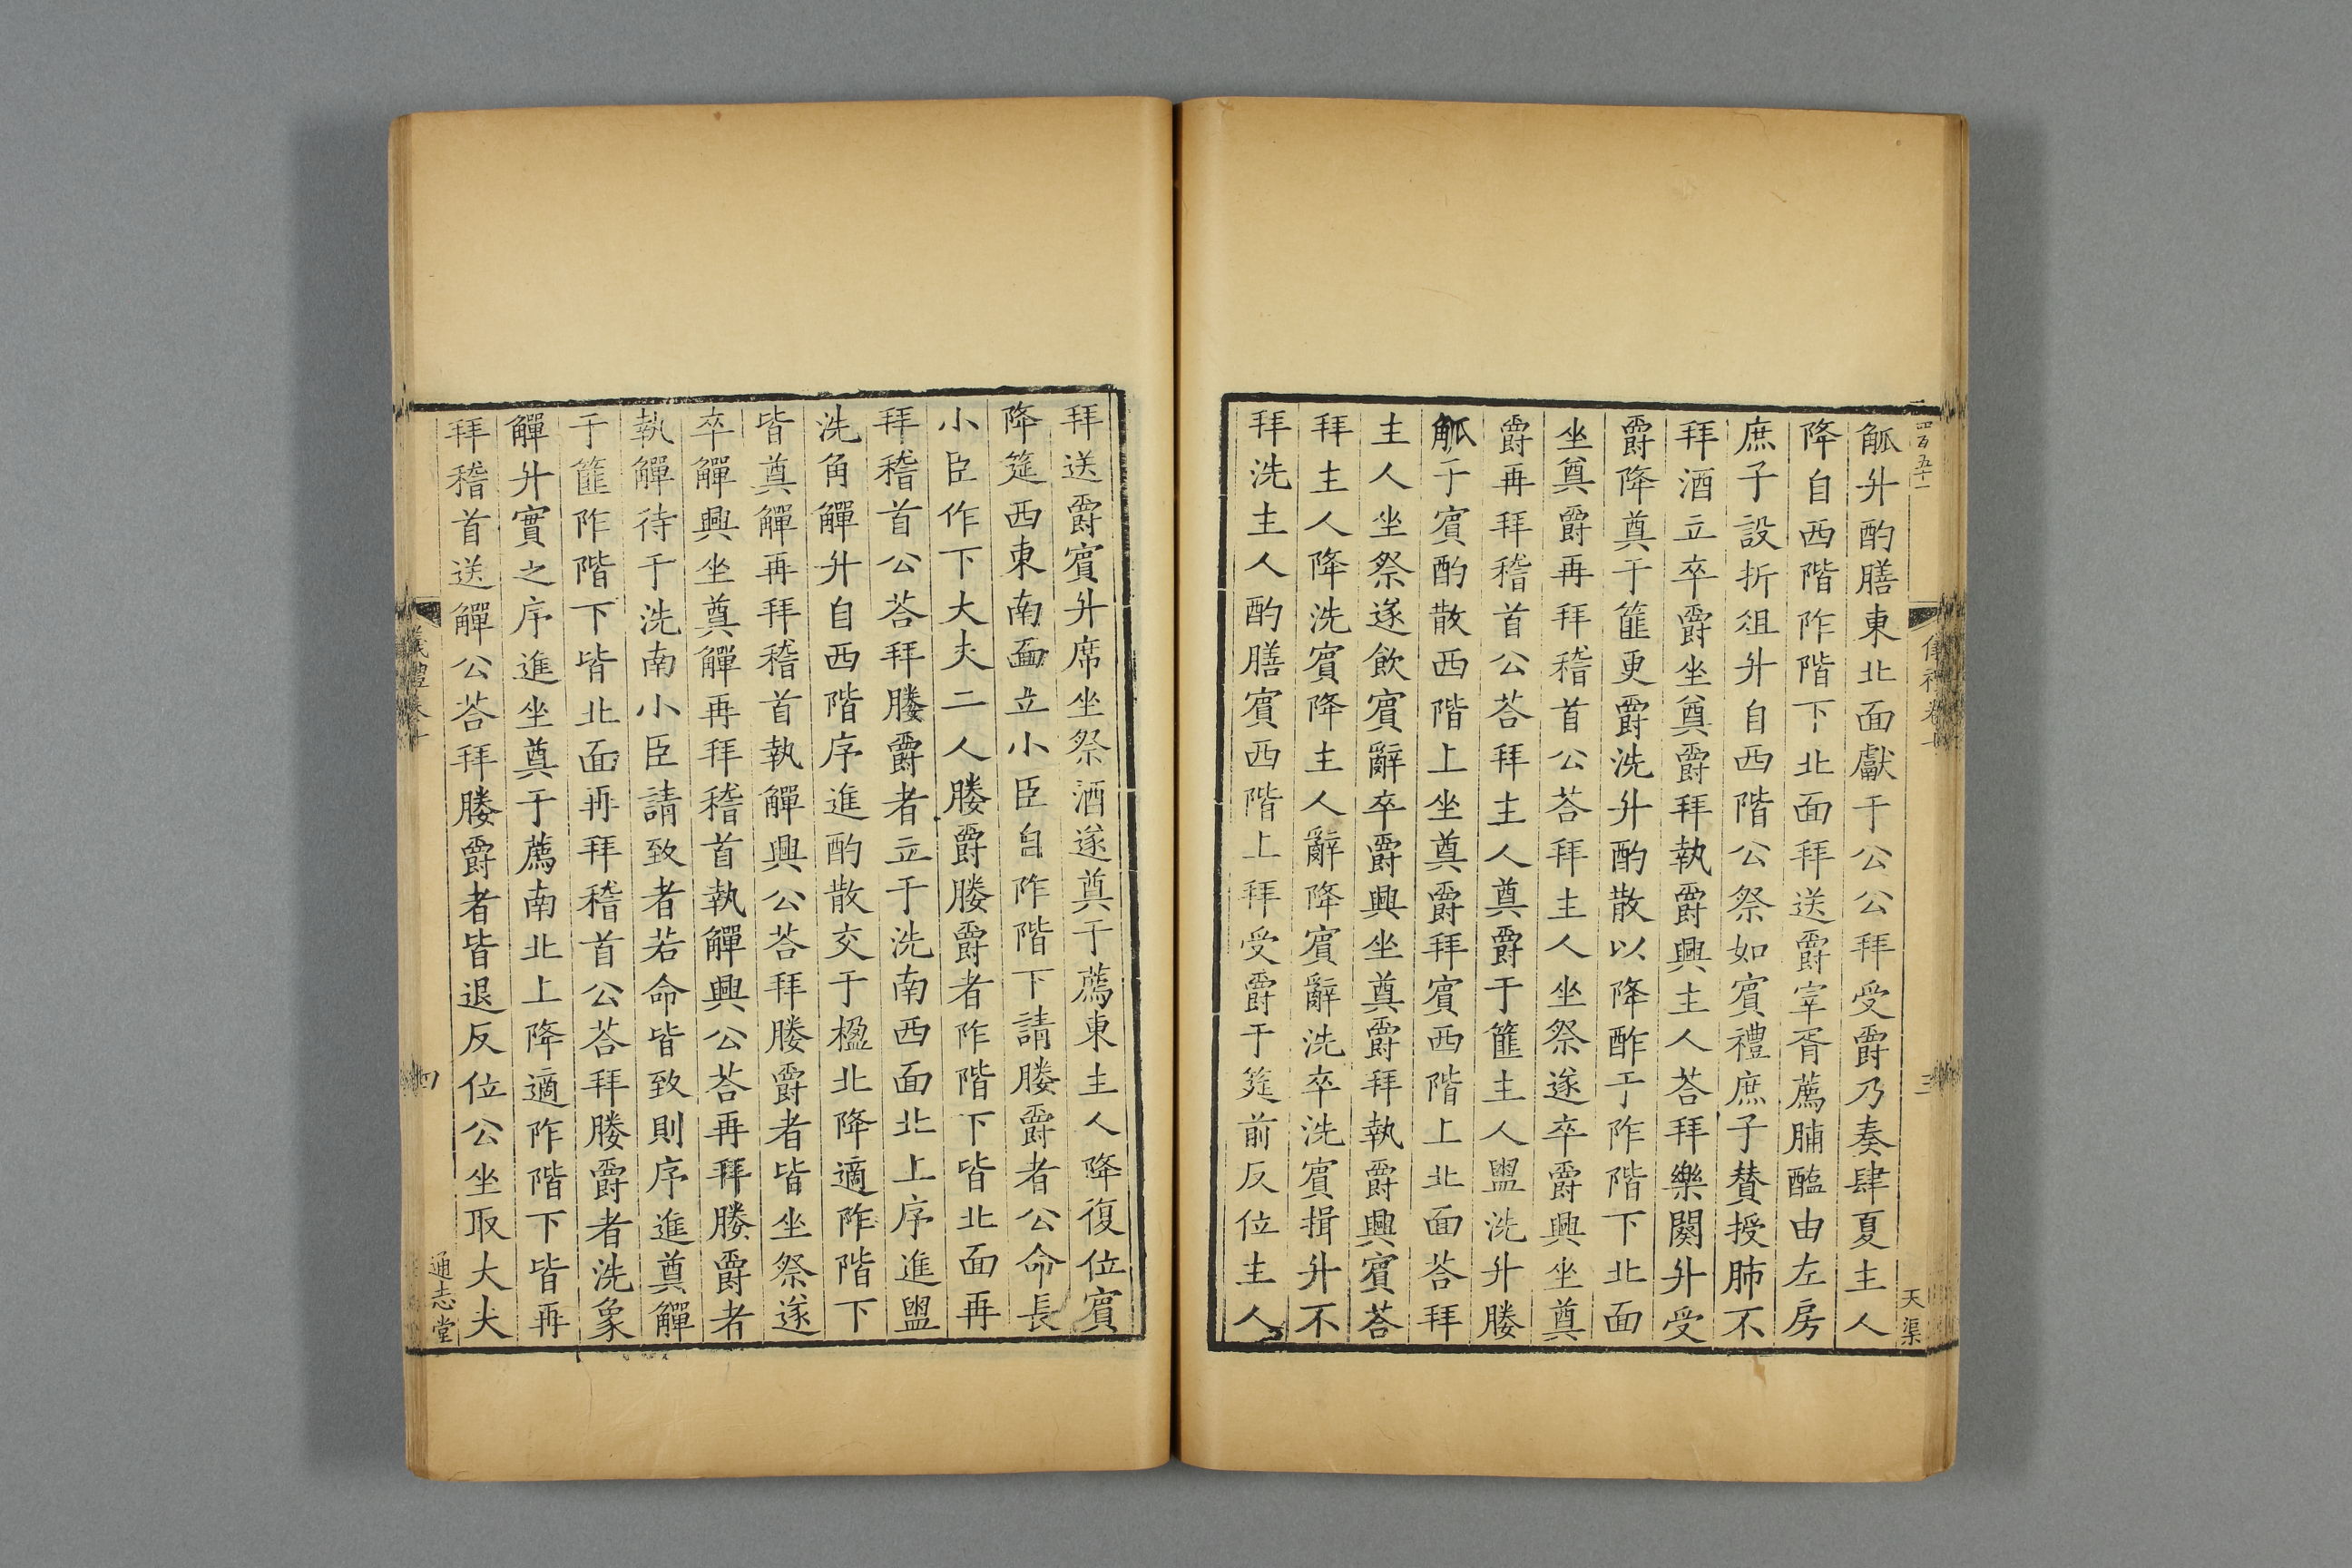 四百五十一
觚升酌膳東北面獻于公公拜受爵乃奏肆夏主人
降自西階阼階下北面拜送爵宰胥薦脯醢由左房
庶子設折俎升自西階公祭如賔禮庶子賛授肺不
拜酒立卒爵坐奠爵拜執爵興主人荅拜樂闋升受
爵降奠于篚更爵洗升酌散以降酢于阼階下北面
坐奠爵再拜稽首公荅拜主人坐祭遂卒爵興坐奠
爵再拜稽首公荅拜主人奠爵于篚主人盥洗升媵
觚于賔酌散西階上坐奠爵拜賔西階上北面荅拜
主人坐祭遂飲賔辭卒爵興坐奠爵拜執爵興賔荅
拜主人降洗賔降主人辭降賔辭洗卒洗賔揖升不
拜洗主人酌膳賔西階上拜受爵于筵前反位主人
三
天渠
拜送爵賔升席坐祭酒遂奠于薦東主人降復位賔
降筵西東南面立小臣自阼階下請媵爵者公命長
小臣作下大夫二人媵爵媵爵者阼階下皆北面再
拜稽首公荅拜媵爵者立于洗南西面北上序進盥
洗角觶升自西階序進酌散交于楹北降適阼階下
皆奠觶再拜稽首執觶興公荅拜媵爵者皆坐祭遂
卒觶興坐奠觶再拜稽首執觶興公荅再拜媵爵者
執觶待于洗南小臣請致者若命皆致則序進奠觶
于篚阼階下皆北面再拜稽首公荅拜媵爵者洗象
觶升實之序進坐奠于薦南北上降適阼階下皆再
拜稽首送觶公荅拜媵爵者皆退反位公坐取大夫
四
通志堂